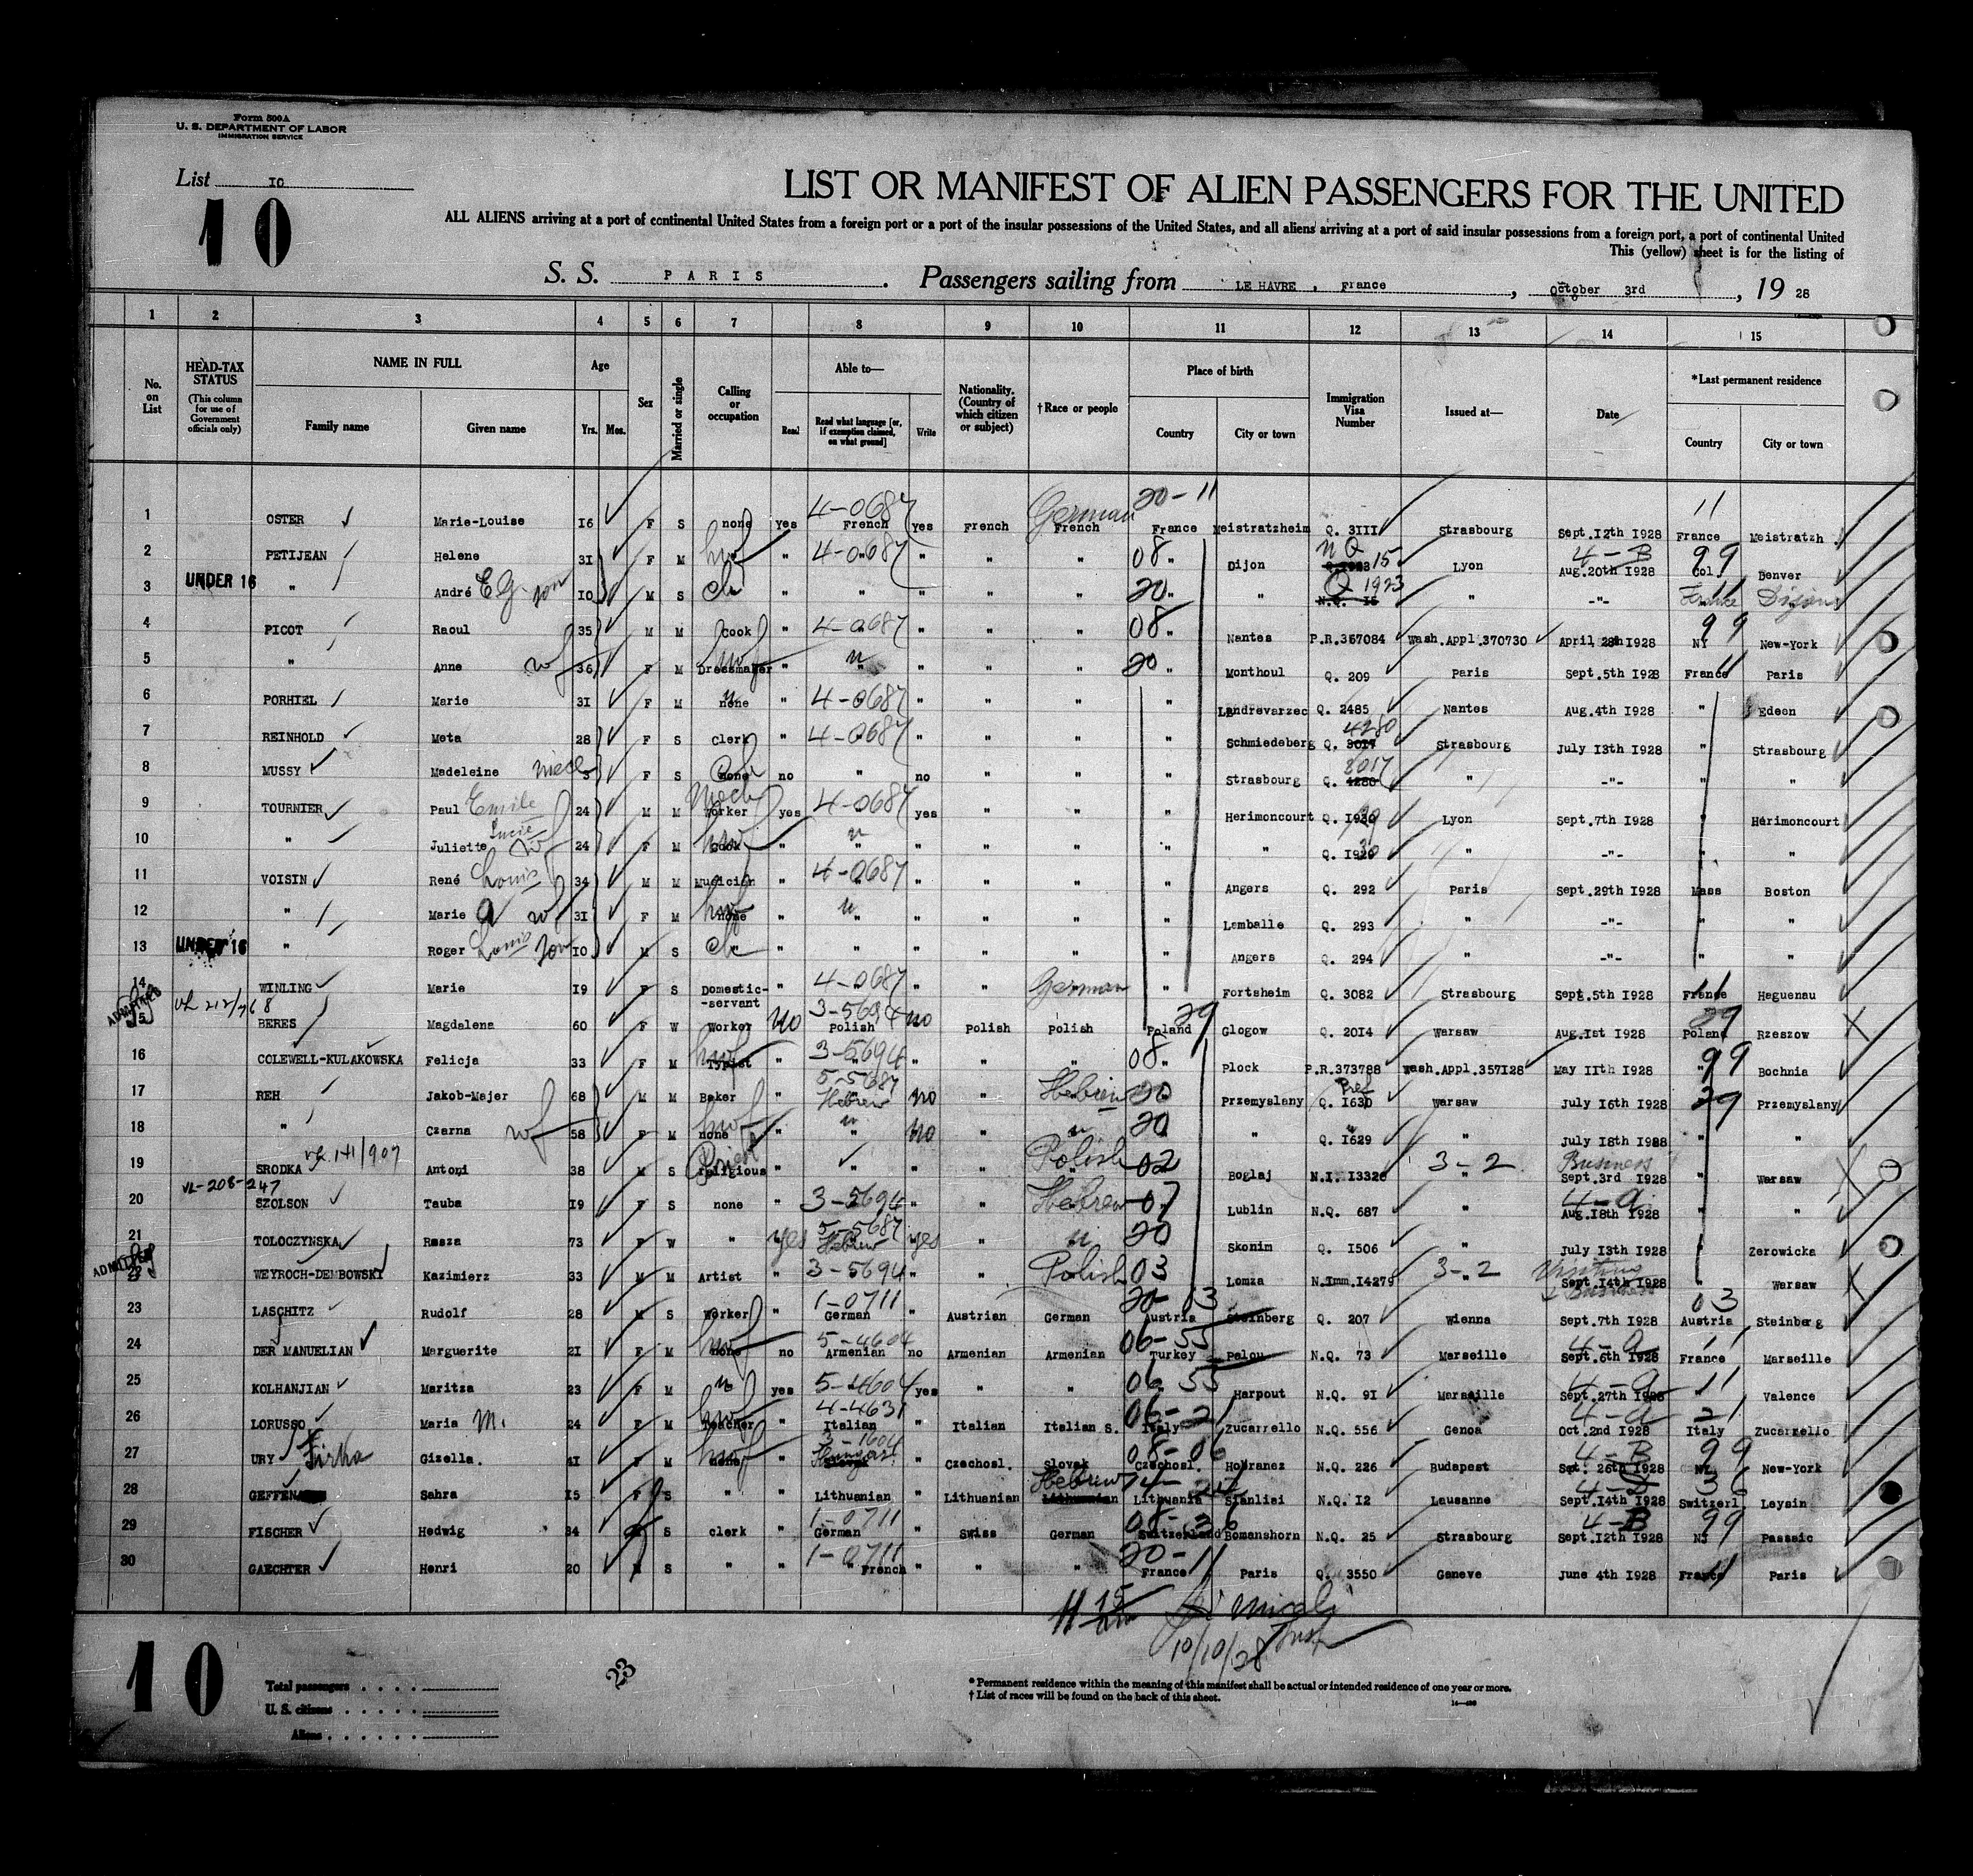 Form 500A
U. S. DEPARTMENT OF LABOR
IMMIGRATION SERVICE
List 10
10
LIST OR MANIFEST OF ALIEN PASSENGERS FOR THE UNITED
ALL ALIENS arriving at a port of continental United States from a foreign port or a port of the insular possessions of the United States, and all aliens arriving at a port of said insular possessions from a foreign port, a port of continental United
This (yellow) sheet is for the listing of
S. S. PARIS. Passengers sailing from LE HAVRE, France, October 3rd, 19 28
1 2 3 4 5 6 7 8 9 10 11 12 13 14 15
No. on List
HEAD-TAX STATUS (This column for use of Government officials only)
NAME IN FULL Family name Given name
Age Yrs. Mos.
Sex
Married or single
Calling or occupation
Able to— Read Read what language [or, if exemption claimed, on what ground] Write
Nationality. (Country of which citizen or subject)
†Race or people
Place of birth Country City or town
Immigration Visa Number
Issued at—
Date
*Last permanent residence Country City or town
1 OSTER Marie-Louise 16 F S none yes 4-0687 French yes French German French 20-11 France Meistratzheim Q. 3111 Strasbourg Sept.12th 1928 11 France Meistratzh.
2 PETIJEAN Helene 31 F M hwf " 4-0687 " " " 08 " Dijon NQ 15 Lyon 4-B Aug.20th 1928 99 Col. Denver
3 UNDER 16 " André E.G. son 10 M S ch " " " " " 20 " " Q 1923 N.Q. 15 " -"- France Dijon
4 PICOT Raoul 35 M M Cook " 4-0687 " " " 08 " Nantes P.R.367084 Wash.Appl.370730 April 28th 1928 99 NY New-York
5 " Anne wf 36 F M Dressmaker " " " " " 20 " Monthoul Q. 209 Paris Sept.5th 1928 11 France Paris
6 PORHIEL Marie 31 F M none " 4-0687 " " " " Landrevarzec Q. 2485 Nantes Aug.4th 1928 " Edeon
7 REINHOLD Meta 28 F S Clerk " 4-0687 " " " " Schmiedeberg Q. 4280 3017 Strasbourg July 13th 1928 " Strasbourg
8 MUSSY Madeleine niece 3 F S none no " no " " " Strasbourg Q. 3017 4280 " -"- " "
9 TOURNIER Paul Emile 24 M M Mech Worker yes 4-0687 yes " " " Herimoncourt Q. Lyon Sept.7th 1928 " Hérimoncourt
10 " Juliette Lucie wf 24 F M hwf Cook " " " " " " " Q. " -"- " "
11 VOISIN René Louis 34 M M Musician " 4-0687 " " " " Angers Q. 292 Paris Sept.29th 1928 Mass Boston
12 " Marie A wf 31 F M hwf none " " " " " " Lamballe Q. 293 " -"- " "
13 UNDER 16 " Roger Louis son 10 M S ch " " " " " " Angers Q. 294 " -"- " "
14 WINLING Marie 19 F S Domestic-servant " 4-0687 " " German " Fortsheim Q. 3082 Strasbourg Sept.5th 1928 11 France Haguenau
15 ADMITTED BERES Magdalena 60 F W Worker no 3-5694 Polish no Polish Polish 29 Poland Glogow Q. 2014 Warsaw Aug.1st 1928 29 Poland Rzeszow
16 COLEWELL-KULAKOWSKA Felicja 33 F M hwf Typist " 3-5694 " " " 08 " Plock P.R.373788 Wash.Appl.357128 May 11th 1928 99 " Bochnia
17 REH Jakob-Majer 68 M M Baker " 5-5687 Hebrew no " Hebrew 20 Przemyslany Pref Q. 1630 Warsaw July 16th 1928 29 Przemyslany
18 " Czarna wf 58 F M hwf none " " no " " 20 " Q. 1629 " July 18th 1928 " "
19 SRODKA Antoni 38 M S Priest religious " " " " Polish 02 Boglaj N.I. 13326 3-2 " Business Sept.3rd 1928 " Warsaw
20 VL-208-247 SZOLSON Tauba 19 F S none " 3-5694 " " Hebrew 07 Lublin N.Q. 687 " 4-a Aug.18th 1928 " "
21 TOLOCZYNSKA Rasza 73 F W " yes 5-5687 Hebrew yes " " 20 Skonim Q. 1506 " July 13th 1928 " Zerowicka
22 ADMITTED WEYROCH-DEMBOWSKI Kazimierz 33 M M Artist " 3-5694 " " Polish 03 Lomza N.Imm.14279 3-2 " Visiting & Business Sept.14th 1928 " Warsaw
23 LASCHITZ Rudolf 28 M S Worker " 1-0711 German " Austrian German 20-03 Austria Steinberg Q. 207 Wienna Sept.7th 1928 03 Austria Steinberg
24 DER MANUELIAN Marguerite 21 F M hwf none no 5-4604 Armenian no Armenian Armenian 06-55 Turkey Palou N.Q. 73 Marseille 4-a Sept.6th 1928 11 France Marseille
25 KOLHANJIAN Maritza 23 F M " yes 5-4604 yes " " 06 55 Harpout N.Q. 91 Marseille 4-a Sept.27th 1928 11 " Valence
26 LORUSSO Maria M. 24 F M hwf Teacher " 4-4631 Italian " Italian Italian S. 06-21 Italy Zucarrello N.Q. 556 Genoa 4-a Oct.2nd 1928 21 Italy Zucarrello
27 URY Gizella. 41 F M hwf none " 3-1604 Hungar. " Czechosl. Slovak 08-06 Czechosl. Hobranez N.Q. 226 Budapest 4-B Spt. 26th 1928 99 NY. New-York
28 Sahra 15 F S " " Lithuanian " Lithuanian Hebrew Lithuanian Lithuania N.Q. 12 Lausanne Sept.14th 1928 36 Switzerl Leysin
29 FISCHER Hedwig 34 S clerk " 1-0711 German " Swiss German 08-36 Switzerland Bomanshorn N.Q. 25 Strasbourg 4-B Sept.12th 1928 99 NJ Passaic
30 GAECHTER Henri 20 S " " 1-0711 " French " " " 20-11 France Paris Q. 3550 Geneve June 4th 1928 11 France Paris
10/10/28
10
23
Total passengers
U. S. citizens
Aliens
* Permanent residence within the meaning of this manifest shall be actual or intended residence of one year or more.
† List of races will be found on the back of this sheet.